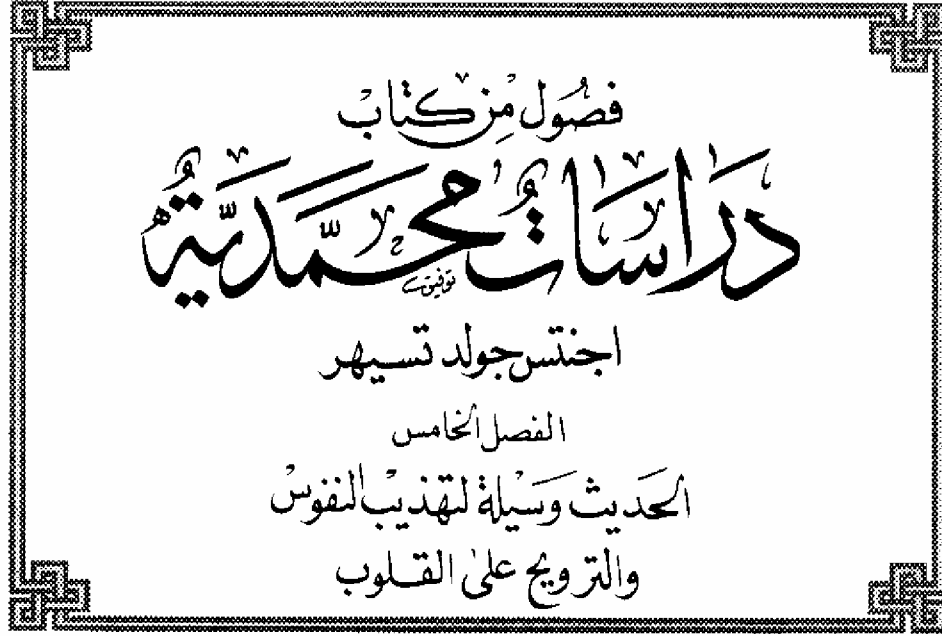 فصُول مِن كتابْ
دَرَاسَاتٌ محمَّدَيَّةٌ
توفيق
اجنتس جولد تسيهر
الفصل الخامس
الحَديث وَسيْلة لتهذيبْ النفوسْ
والترويح على القلوب